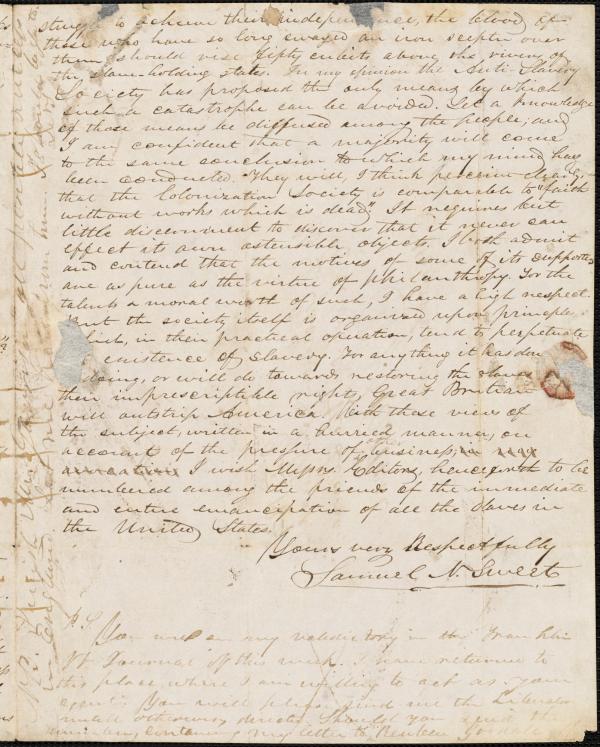 struggle to achieve their independence, the blood of
those who have so long swayed an iron scepter over
them should rise fifty cubits above the rivers of
the slave-holding states. In my opinion the Anti-Slavery
Society has proposed the only means by which
such a catastrophe can be avoided. Let a knowledge
of those means be diffused among the people, and
I am confident that a majority will come
to the same conclusion to which my mind has
been conducted. They will, I think perceive clearly,
that the Colonization Society is comparable to "faith
without works which is dead." It requires but
little discernment to discover that it never can
effect its own ostensible objects. I both admit
and contend that the motives of some of its supporters
are as pure as the virtue of philanthropy. For the
talents & moral worth of such, I have a high respect.
But the society itself is organized upon principles
which, in their practical operation, tend to perpetuate
existence of slavery. For anything it has done
doing, or will do towards restoring the slaves
their imprescriptible rights, Great Britian
will outstrip America. With these views of
the subject, written in a hurried manner, on
account of the pressure of other business,
I wish Messrs. Editors, henceforth to be
numbered among the friends of the immediate
and entire emancipation of all the slaves in
the United States.
Yours very Respectfully
Samuel N. Sweet
P.S. You will see my valedictory in the Franklin
Journal of this week. I have returned to
this place, where I am willing to act as your
agent. You will please send me the Liberator
until otherwise directed. Should you send the
number, containing my letter to Reuben